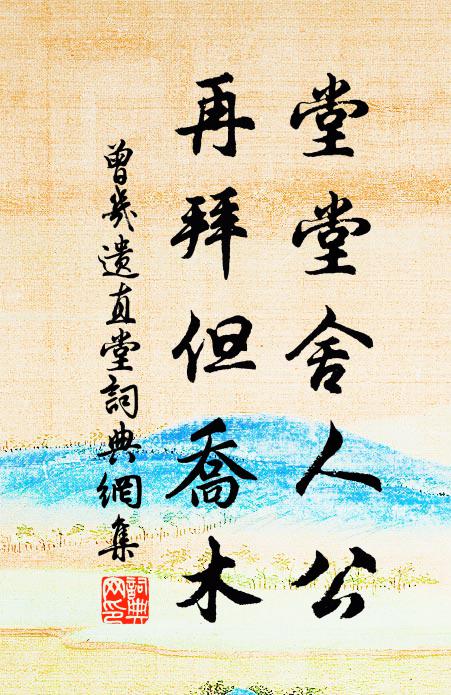 堂堂舍人公
再拜但喬木
曾幾遺直堂詞典網集
詞典